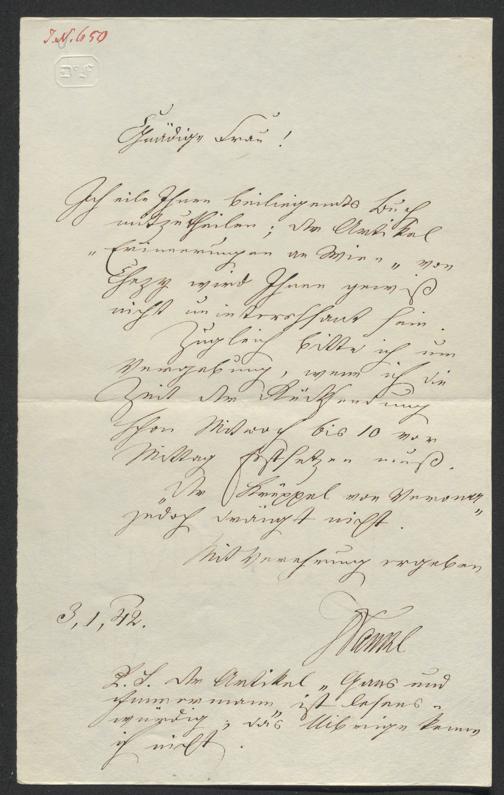 I.N. 650
Gnädige Frau!
Ich eile Ihnen beiliegendes Buch
mitzutheilen; der Artikel
„Erinnerungen an Wien" von
Chezy wird Ihnen gewiß
nicht uninteressant sein.
Zugleich bitte ich um
Vergebung, wenn ich die
Zeit der Rücksendung
schon Mitwoch bis 10 vor
Mittag festsetzen muß.
Der „Krüppel von Verona"
jedoch drängt nicht.
Mit Verehrung ergeben
3, 1, 42.
P.S. Der Artikel „Gans und
Immermann" ist lesens-
würdig; das Uibrige kenne
ich nicht.